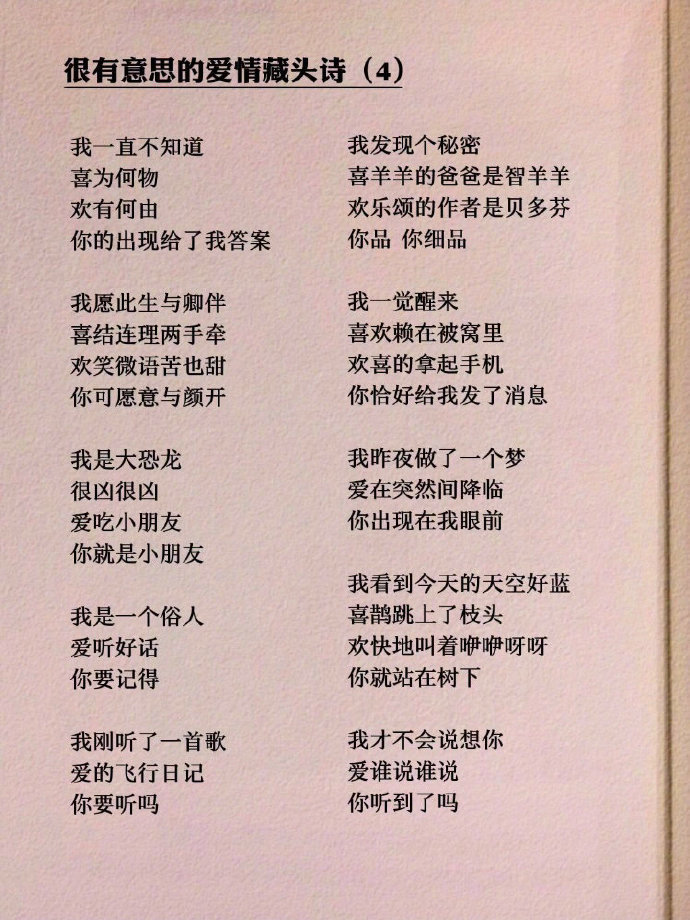 很有意思的爱情藏头诗（4）
我一直不知道
喜为何物
欢有何由
你的出现给了我答案
我愿此生与卿伴
喜结连理两手牵
欢笑微语苦也甜
你可愿意与颜开
我是大恐龙
很凶很凶
爱吃小朋友
你就是小朋友
我是一个俗人
爱听好话
你要记得
我刚听了一首歌
爱的飞行日记
你要听吗
我发现个秘密
喜羊羊的爸爸是智羊羊
欢乐颂的作者是贝多芬
你品 你细品
我一觉醒来
喜欢赖在被窝里
欢喜的拿起手机
你恰好给我发了消息
我昨夜做了一个梦
爱在突然间降临
你出现在我眼前
我看到今天的天空好蓝
喜鹊跳上了枝头
欢快地叫着咿咿呀呀
你就站在树下
我才不会说想你
爱谁说谁说
你听到了吗